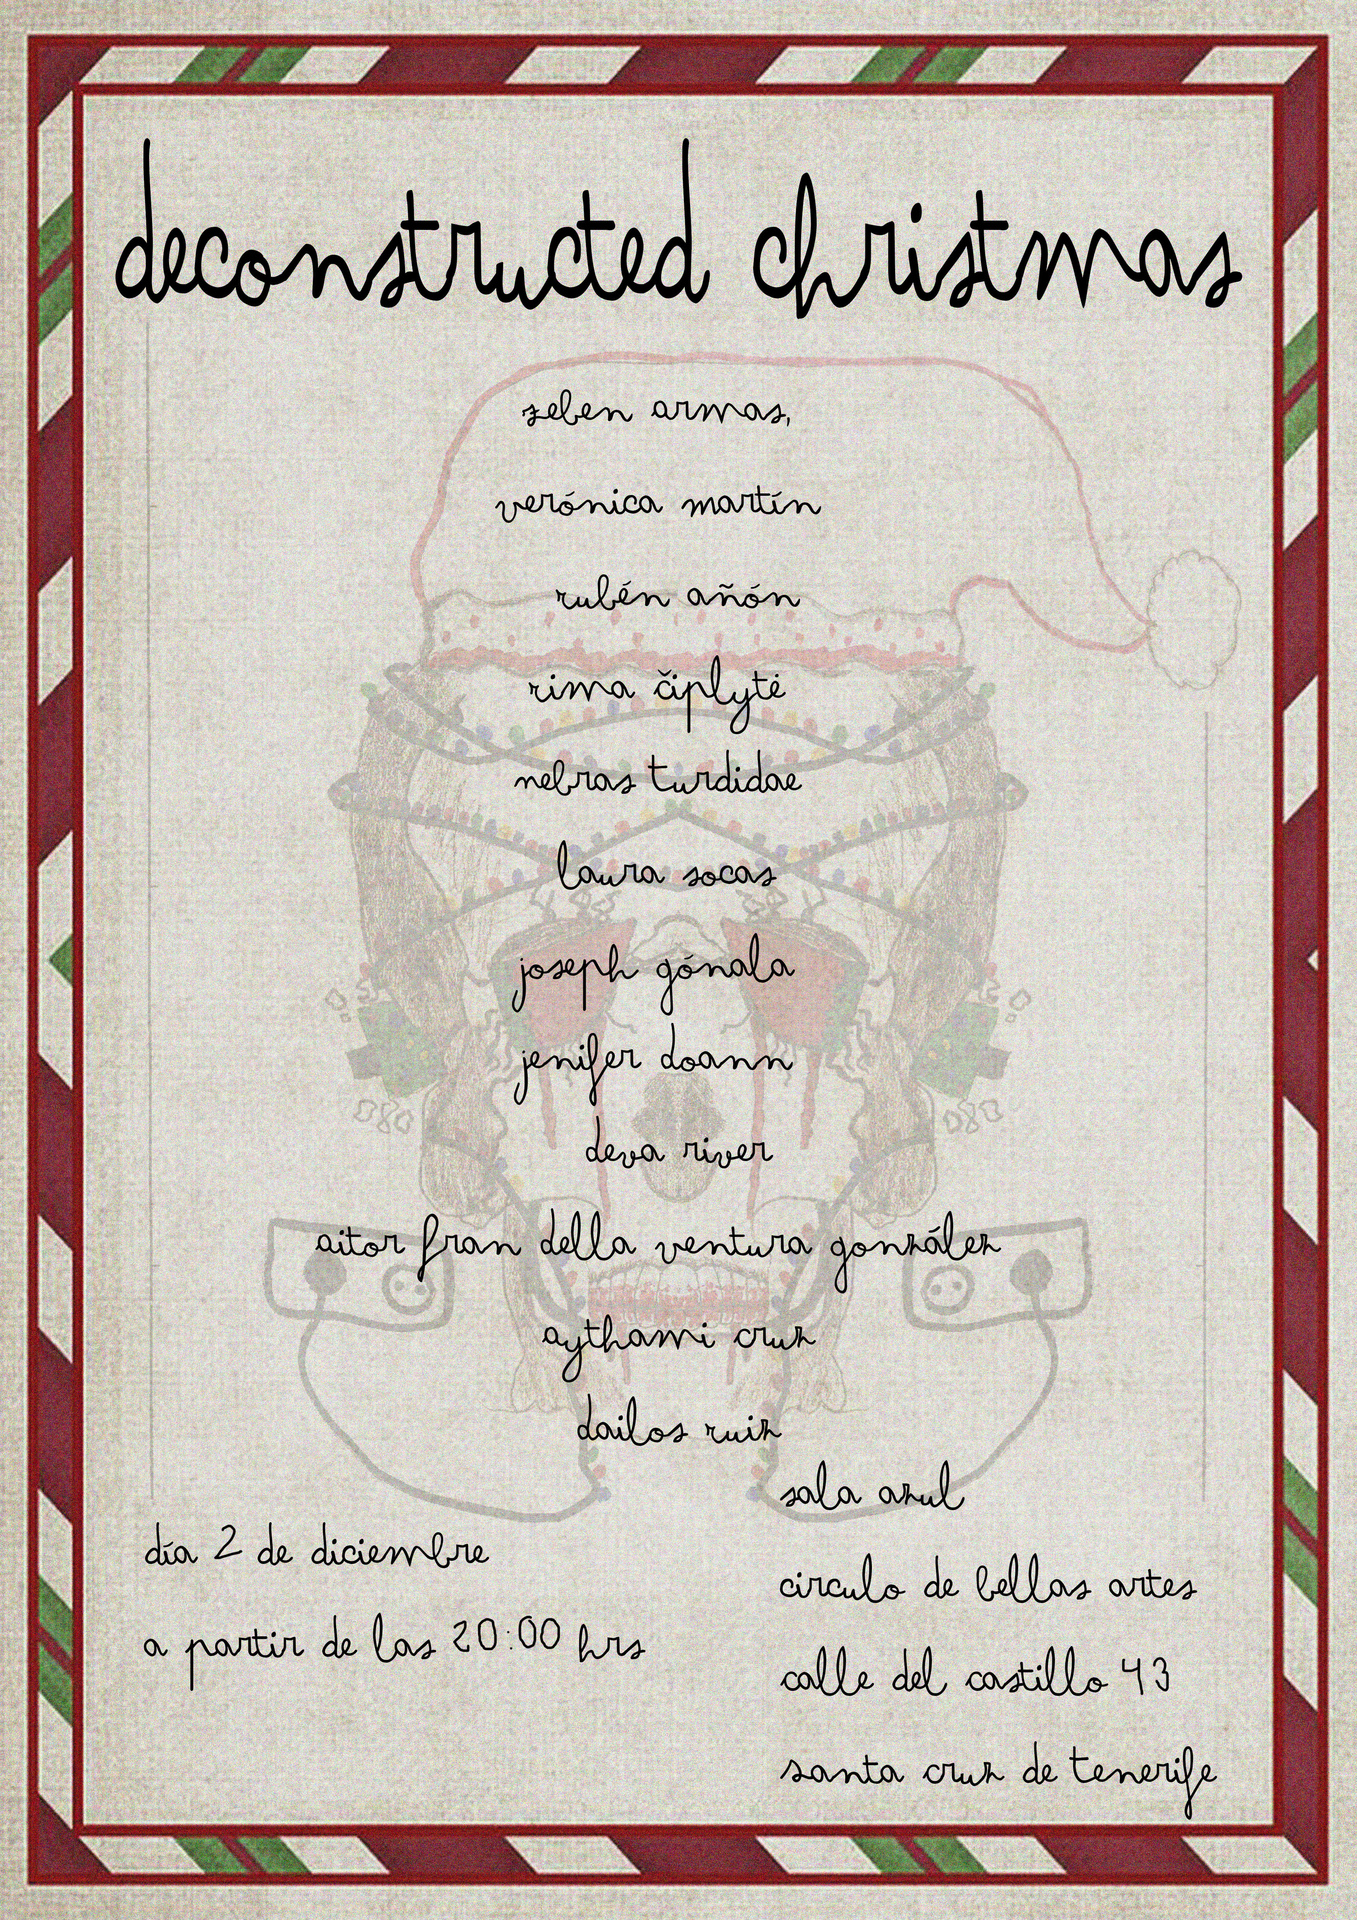 deconstructed christmas
seben armas,
verónica martín
rubén añón
rima čiplytė
nebras turdidae
laura socas
joseph gónala
jenifer doann
deva river
aitor fran della ventura gonzález
aythami cruz
dailos ruiz
sala azul
día 2 de diciembre
circulo de bellas artes
a partir de las 20:00 hrs
calle del castillo 43
santa cruz de tenerife